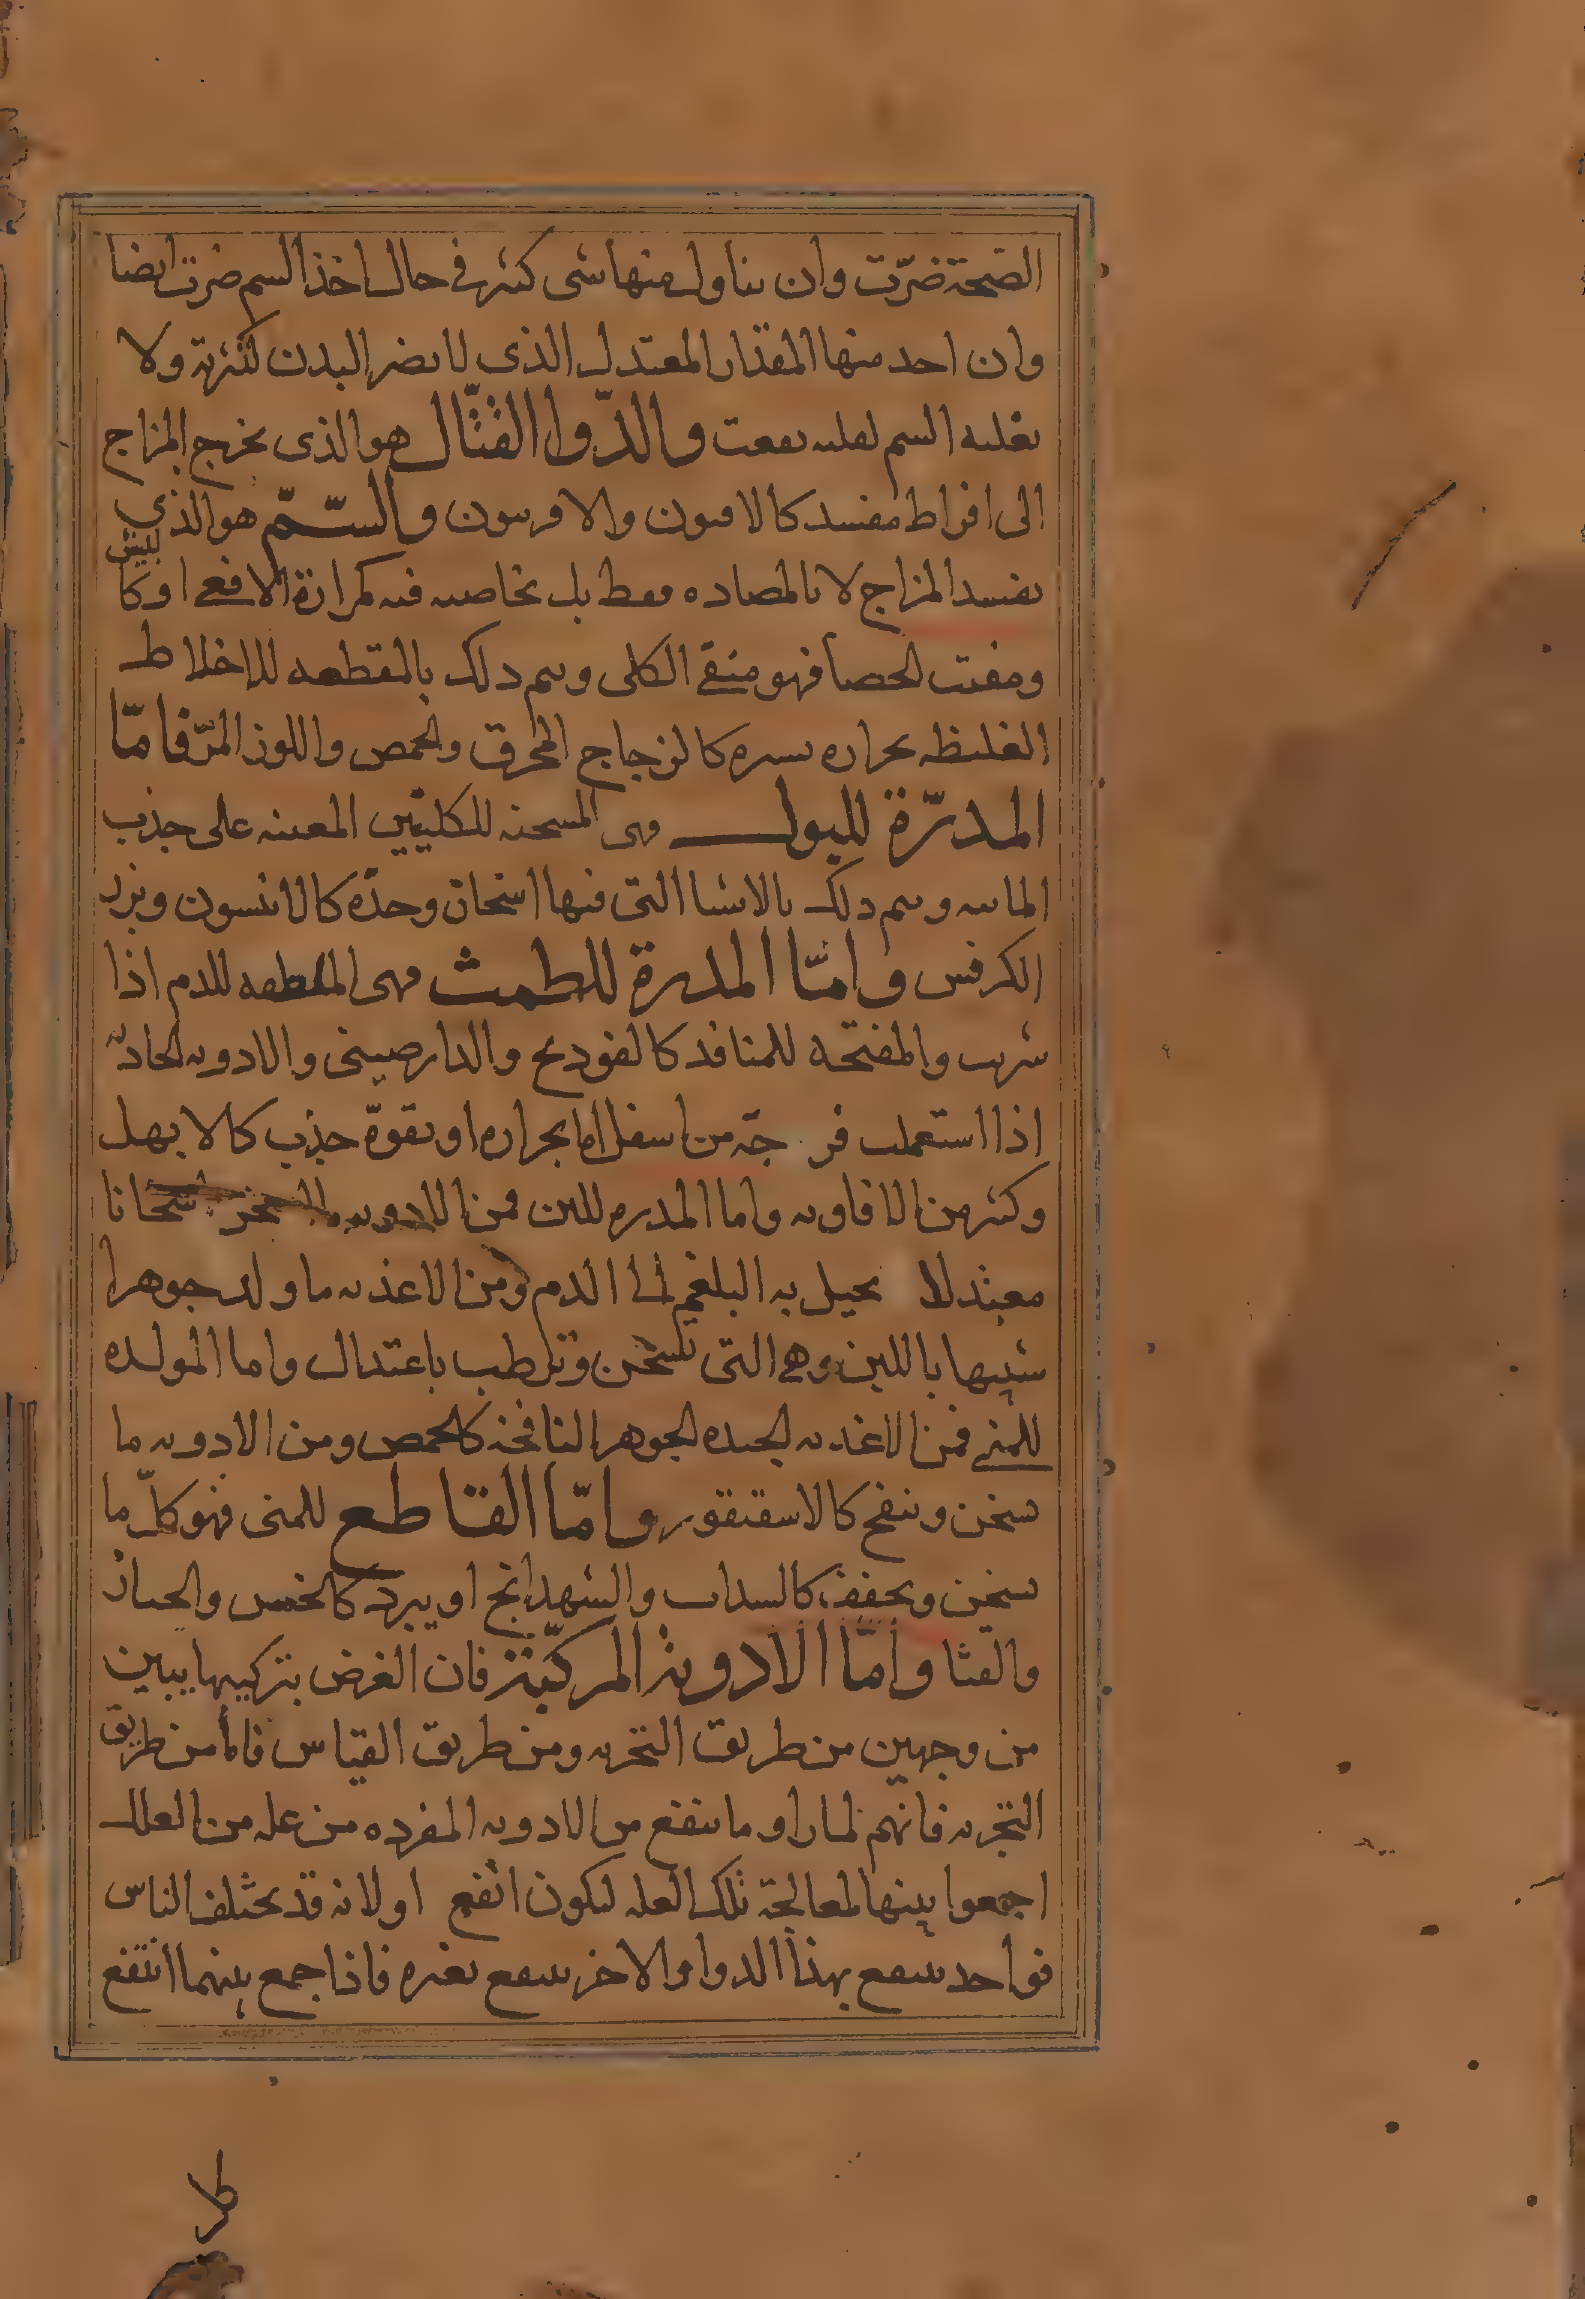 الصحة ضرّت وان تناول منها شى كثير فى حال اخذ السم ضرت ايضا
وان احد منها المقدار المعتدل الذى لا يضر البدن لكثرته ولا
يغلبه السم لقلته نفعت والدّوا القتّال هو الذى يخرج المزاج
الى افراط مفسد كالافيون والافربيون والسّمّ هو الذي
يفسد المزاج لا بالمضاده فقط بل بخاصيه فيه كمرارة الافعى او كا
لبيش
ومفتت الحصا فهو منقى الكلى ويتم دلك بالمقطعه للاخلاط
الغليظه بحراره يسيره كالزجاج المحرق والحمص واللوز المرّ فامّا
المدرّة للبول فهى المسخنه للكليتين المعينه على جذب
المائيه ويتم دلك بالاشيا التى فيها اسخان وحدّه كالانيسون وبزر
الكرفس وامّا المدرة للطمث فهى الملطفه للدم اذا
شربت والمفتحه للمنافد كالفودنج والدارصينى والادويه الحادّه
اذا استعملت فرجة من اسفل اما بحراره او بقوّة جذب كالابهل
وكثير من الافاويه واما المدره للبن فمن الادويه ما يسخن اسخانا
معتدلا يحيل به البلغم الى الدم ومن الاغذيه ما ولد جوهرا
شبيها باللبن وهى التى تسخن وترطب باعتدال واما المولده
للمنى فمن الاغذيه الجيده الجوهر النافخة كالحمص ومن الادويه ما
يسخن وينفخ كالاسقنقور وامّا القاطع للمنى فهو كلّ ما
يسخن ويجفف كالسداب والشهدانج او يبرد كالخس والخيار
والقثا وأمّا الادوية المركّبة فان الغرض بتركيبها يبين
من وجهين من طريق التجربه ومن طريق القياس فاما من طريق
التجربه فانهم لما راو ما ينفع من الادويه المفرده من عله من العلل
اجمعوا بينها لمعالجة تلك العله ليكون انفع اولانه قد يختلف الناس
فواحد ينتفع بهذا الدوا والاخر ينتفع بغيره فاذا جمع بينهما انتفع